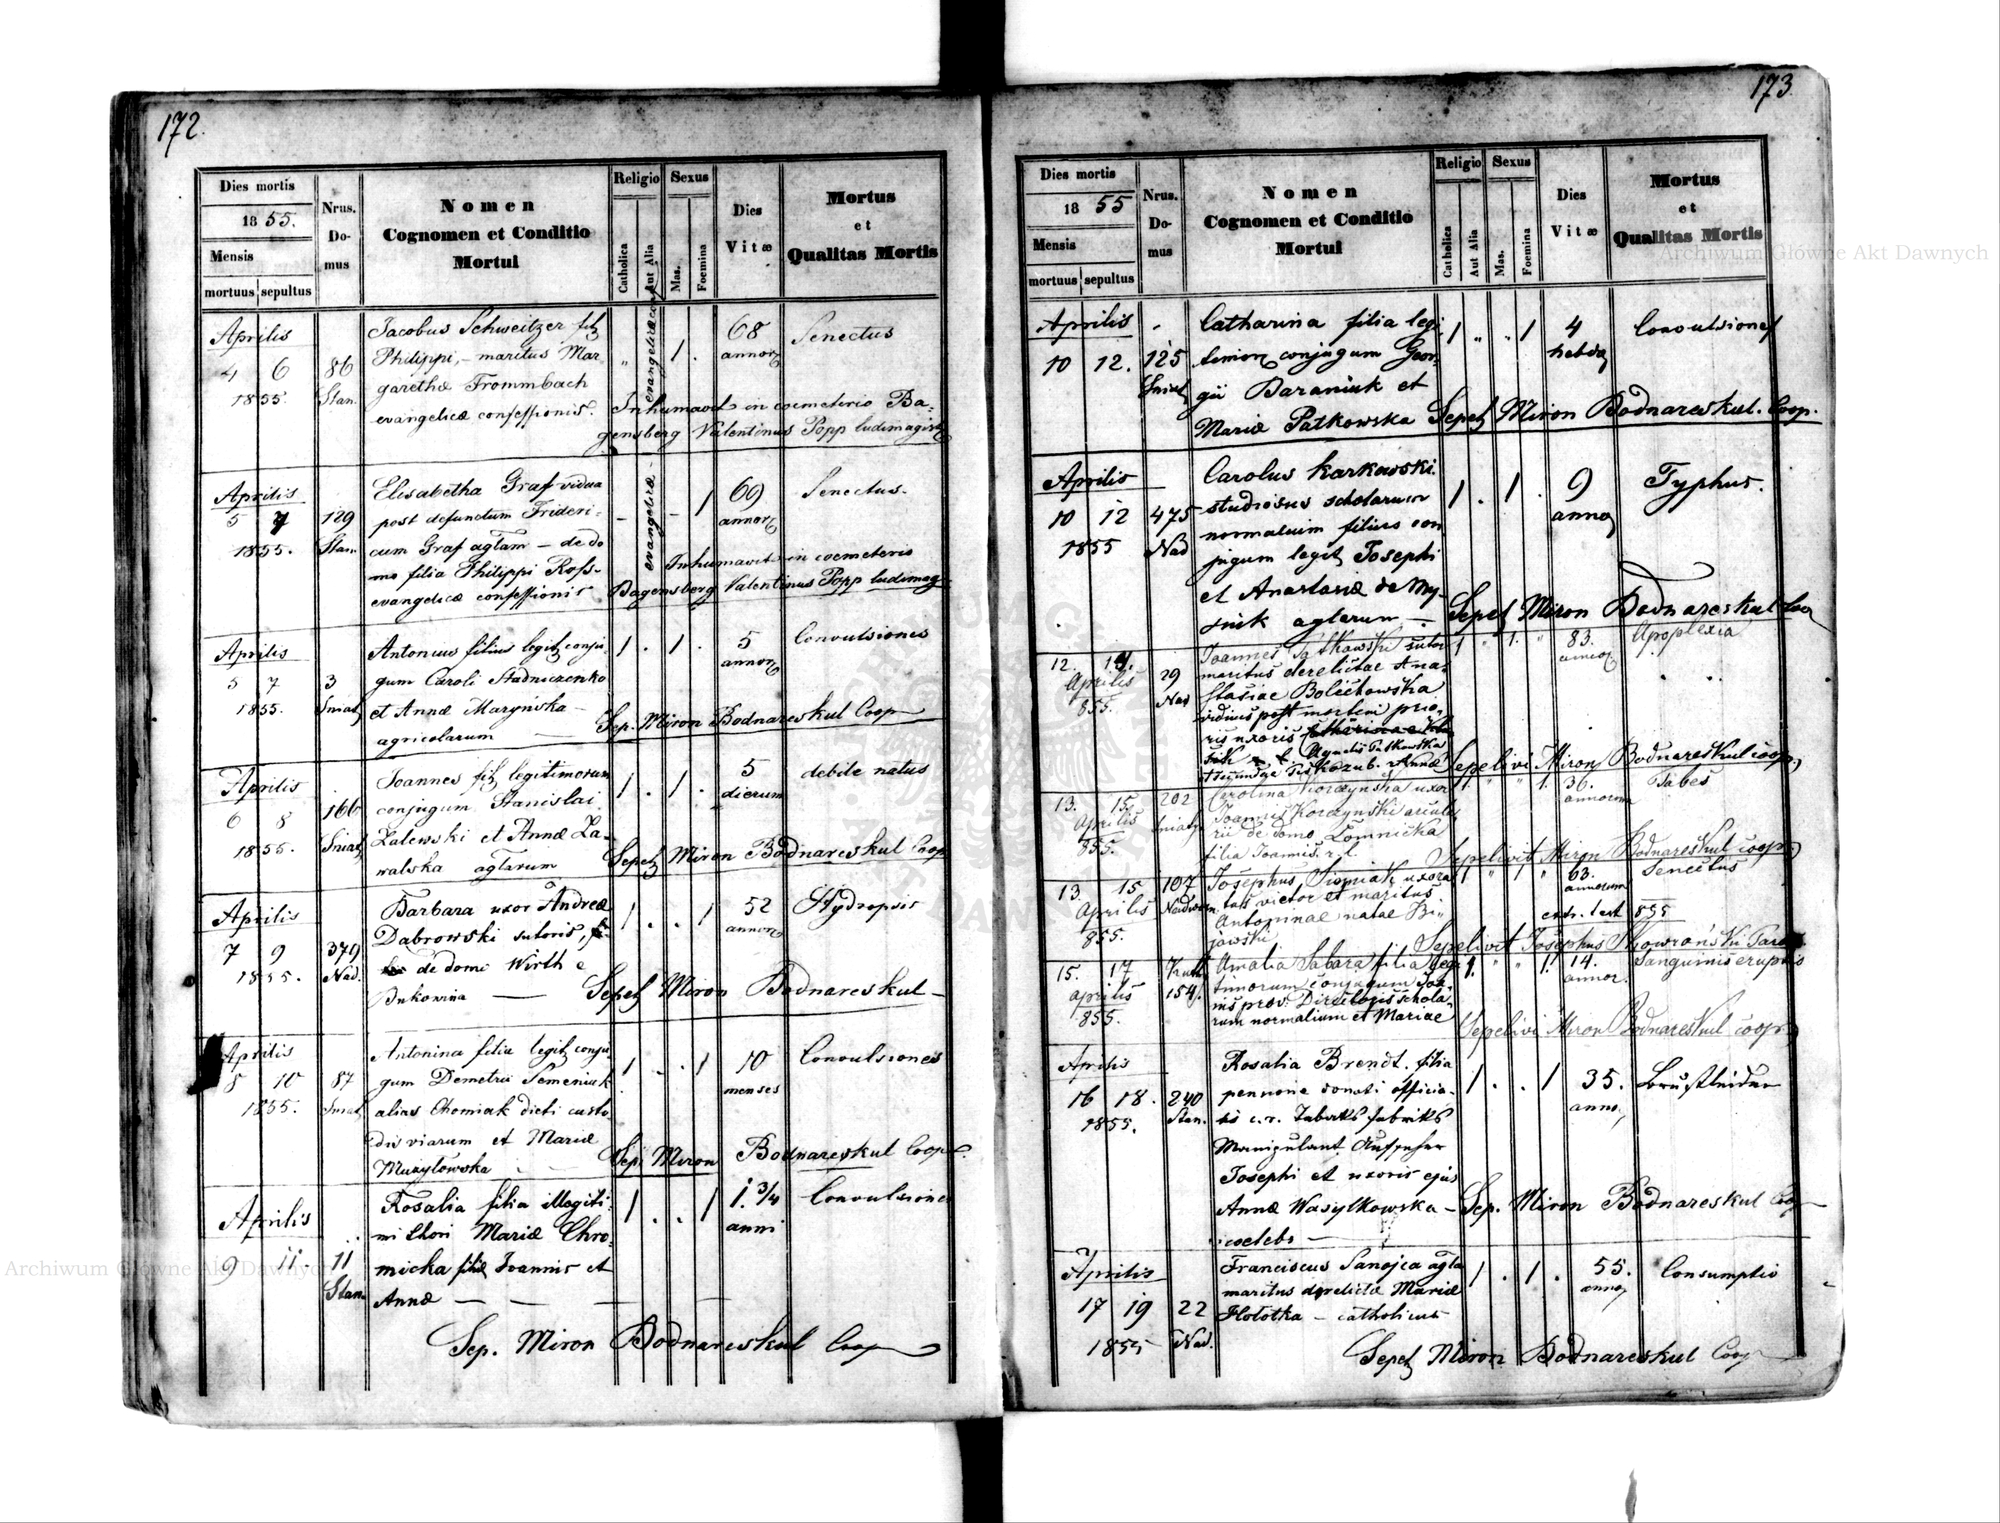 172.
Dies mortis
18 55.
Mensis
mortuus sepultus
Nrus.
Do-
mus
Nomen
Cognomen et Conditio
Mortui
Religio
Catholica
Aut Alia
Sexus
Mas.
Foemina
Dies
Vitæ
Mortus
et
Qualitas Mortis
Aprilis
4 6
1855.
86
Stan.
Jacobus Schweitzer
Philippi, – maritus Mar
garethæ Frommbach
evangelicæ confessionis.
evangelicæ conf
" 1 .
68
annor
Senectus
Inhumavit in coemeterio Ba-
gensberg Valentinus Popp ludimagist
Aprilis
5 7
1855.
129
Stan.
Elisabetha Graf vidua
post defunctum Frideri-
cum Graf agtam – de do
mo filia Philippi Ross-
evangelicæ confessionis
evangelicæ
– – 1
69
annor
Senectus.
Inhumavit in coemeterio
Bagensberg Valentinus Popp ludimag
Aprilis
5 7
1855.
3
Sniat
Antonius filius legit conju
gum Caroli Stadniczenko
et Annæ Maryńska –
agricolarum
1 . 1 .
5
annor
Convulsiones
Sep. Miron Bodnareskul Coop
Aprilis
6 8
1855.
166
Sniat
Joannes fil legitimorum
conjugum Stanislai
Zalewski et Annæ Za-
walska agtarum
1 . 1 .
5
dierum
debile natus
Sepel Miron Bodnareskul Coop
Aprilis
7 9
1855.
379
Nad.
Barbara uxor Andreæ
Dąbrowski sutoris,
de domo Wirth e
Bukowina
1 . . 1
52
annor
Hydropsis
Sepel Miron Bodnareskul –
Aprilis
8 10
1855.
87
Sniat
Antonina filia legit conju
gum Demetrii Semeniuk
alias Chomiak dicti custo
dis viarum et Mariæ
Muzyłowska
1 . . 1
10
menses
Convulsiones
Sep. Miron Bodnareskul Coop.
Aprilis
9 11.
11
Stan.
Rosalia filia illegiti-
mi thori Mariæ Chro-
micka filiæ Joannis et
Annæ
1 . . 1
1. 3/4
anni
Convulsiones
Sep. Miron Bodnareskul Coop
173
Dies mortis
18 55
Mensis
mortuus sepultus
Nrus.
Do-
mus
Nomen
Cognomen et Conditio
Mortui
Religio
Catholica
Aut Alia
Sexus
Mas.
Foemina
Dies
Vitæ
Mortus
et
Qualitas Mortis
Aprilis
10 12.
125
Sniat
Catharina filia legi
timor conjugum Geor-
gii Baraniuk et
Mariæ Patkowska
1 " " 1
4
hebd
Convulsiones
Sepel Miron Bodnareskul. Coop.
Aprilis
10 12
1855
475
Nad
Carolus Karkowski
studiosus scholarum
normalium filius con
jugum legit Josephi
et Anastasiæ de My-
agtarum –
1 . 1 .
9
anno
Typhus.
Sepel Miron Bodnareskul Coo
12. 14.
Aprilis
855.
29
Nad
Joannes Patkowski sutor
maritus derelictae Ana-
stasiae Bolechowska
viduus post mortem prio-
ris uxoris Catherinae
Agnetis Patkowska
1 " 1. "
83.
annor
Apoplexia
Sepelivi Miron Bodnareskul coop.
13. 15.
Aprilis
855.
202
Sniaty
Carolina Korczyńska uxor
Joannis Korczyński
de domo Łomnicka
filia Joannis. r. l.
1. " " 1.
36.
annorum
Tabes
Sepelivit Miron Bodnareskul coop.
13. 15
Aprilis
855.
107
Nadworn.
Josephus uxora
tus victor et maritus
Antoninae natae Bi"
jowski
1 " 1 "
63.
annorum
Senectus
extr. test 855
Sepelivit Josephus Skowroński Paro
15. 17
Aprilis
855.
154.
Amalia Sabara filia legi
timorum conjugum Joa-
nis prov. Directoris schola-
rum normalium et Mariae
1. " " 1.
14.
annor.
Sanguinis eruptio
Sepelivi Miron Bodnareskul coop.
Aprilis
16 18.
1855.
240
Stan.
Rosalia Brendt. filia
pensione donati officia-
lis c. r. Tabaks fabriks
Manipulant Aufseher
Josephi et uxoris ejus
Annæ Wasylkowska –
coelebs –
1 . . 1
35.
anno
Brustleiden
Sep. Miron Bodnareskul Coop
Aprilis
17 19
1855
22
Nad.
Franciscus Sanojca agta
maritus derelictæ Mariæ
Hołotka – catholicus
1 . 1 .
55.
anno
Consumptio
Sepel Miron Bodnareskul Coop
Archiwum Główne Akt Dawnych
Archiwum Główne Akt Dawnych